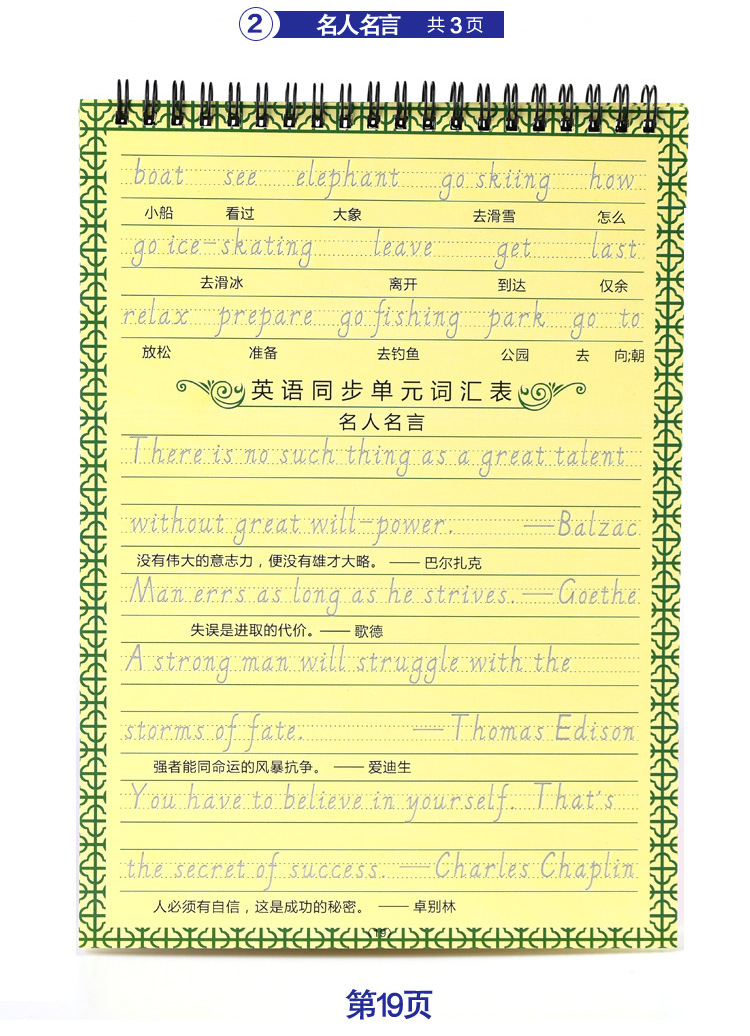 ② 名人名言 共3页
boat see elephant go skiing how
小船 看过 大象 去滑雪 怎么
go ice-skating leave get last
去滑冰 离开 到达 仅余
relax prepare go fishing park go to
放松 准备 去钓鱼 公园 去 向;朝
英语同步单元词汇表
名人名言
There is no such thing as a great talent
without great will-power. —Balzac
没有伟大的意志力，便没有雄才大略。 —— 巴尔扎克
Man errs as long as he strives. —Goethe
失误是进取的代价。—— 歌德
A strong man will struggle with the
storms of fate. —Thomas Edison
强者能同命运的风暴抗争。 —— 爱迪生
You have to believe in yourself. That's
the secret of success. —Charles Chaplin
人必须有自信，这是成功的秘密。 —— 卓别林
19
第19页